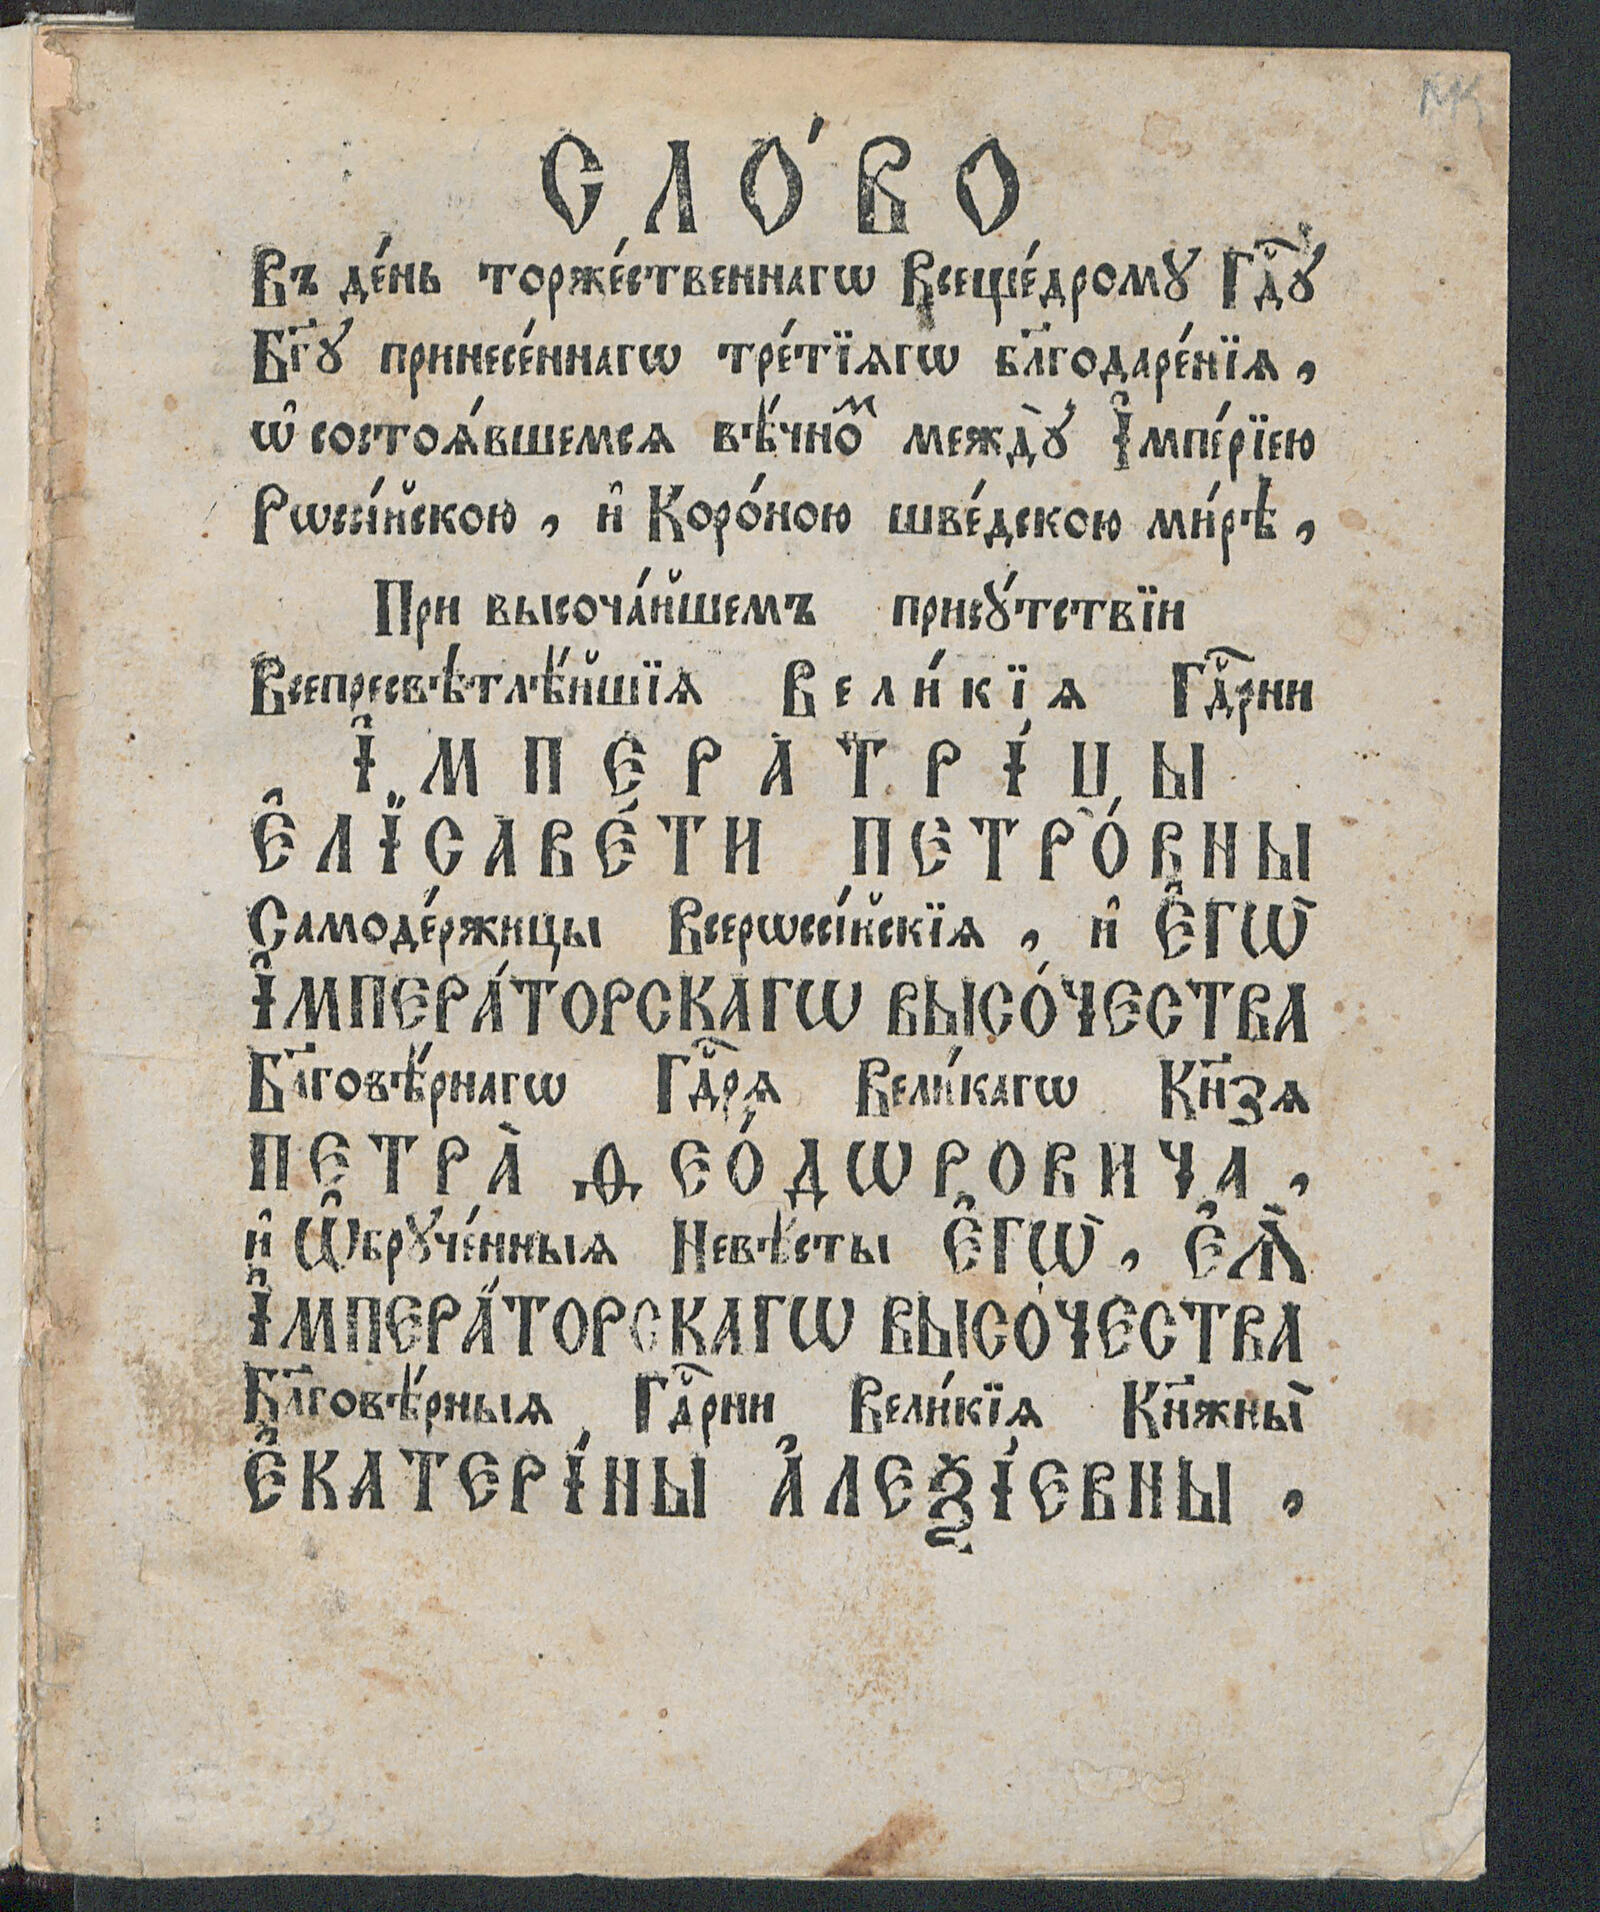 СЛО́ВО
Въ де́нь торже́ственнагѡ Всеще́дромꙋ Гдⷭ҇ꙋ́
Бг҃ꙋ принесе́ннагѡ тре́тїѧгѡ бл҃годаре́нїѧ,
ѡ҆ состоѧ́вшемсѧ вѣ́чноⷨ междꙋ̀ І҆мпе́рїею
Рѡссі́йскою, и҆ Коро́ною шве́дскою ми́рѣ,
При высоча́йшемъ присꙋ́тствїи
Всепресвѣтлѣ́йшїѧ Вели́кїѧ Гдⷭ҇рни
І҆МПЕРАТРІ́ЦЫ
Є҆ЛІСАВЕ́ТИ ПЕТРО́ВНЫ
Самоде́ржицы Всерѡссі́йскїѧ, и҆ Є҆ГѠ̀
І҆МПЕРА́ТОРСКАГѠ ВЫСО́ЧЕСТВА
Бл҃говѣ́рнагѡ Гдⷭ҇рѧ Вели́кагѡ Кн҃зѧ
ПЕТРА̀ Ѳ҆ЕО́ДѠРОВИЧА,
и҆ Ѡ҆брꙋче́нныѧ Невѣ́сты Є҆ГѠ̀, Є҆Ѧ̀
І҆МПЕРА́ТОРСКАГѠ ВЫСО́ЧЕСТВА
Бл҃говѣ́рныѧ Гдⷭ҇рни Вели́кїѧ Кн҃жны̀
Є҆КАТЕРІ́НЫ А҆ЛЕѮІ́ЕВНЫ,